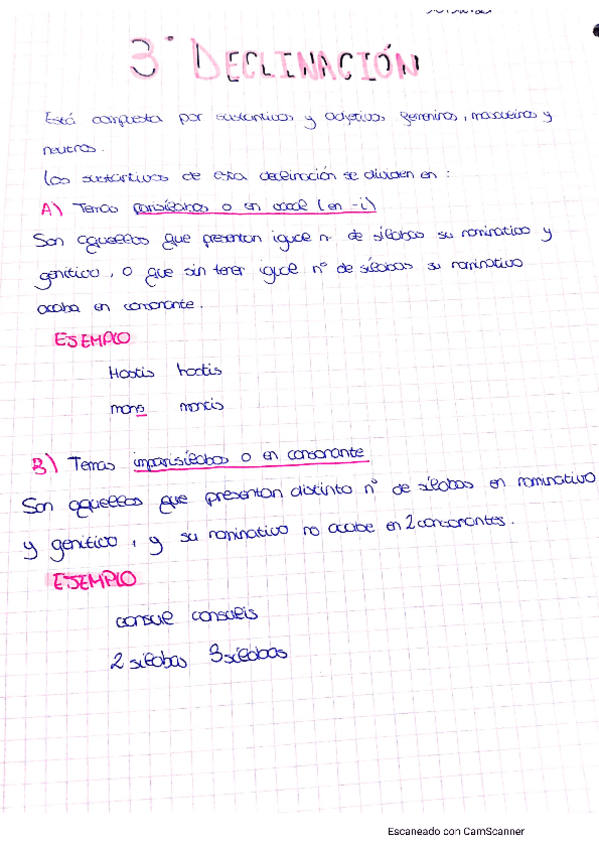 3ª DECLINACIÓN
Está compuesta por sustantivos y adjetivos femeninos, masculinos y
neutros.
Los sustantivos de esta declinación se dividen en :
A) Temas parisílabos o en vocal (en -i)
Son aquellos que presentan igual nº de sílabas su nominativo y
genitivo, o que sin tener igual nº de sílabas su nominativo
acaba en consonante.
EJEMPLO
Hostis hostis
mons montis
B) Temas imparisílabos o en consonante
Son aquellos que presentan distinto nº de sílabas en nominativo
y genitivo, y su nominativo no acabe en 2 consonantes.
EJEMPLO
consul consulis
2 sílabas 3 sílabas
Escaneado con CamScanner